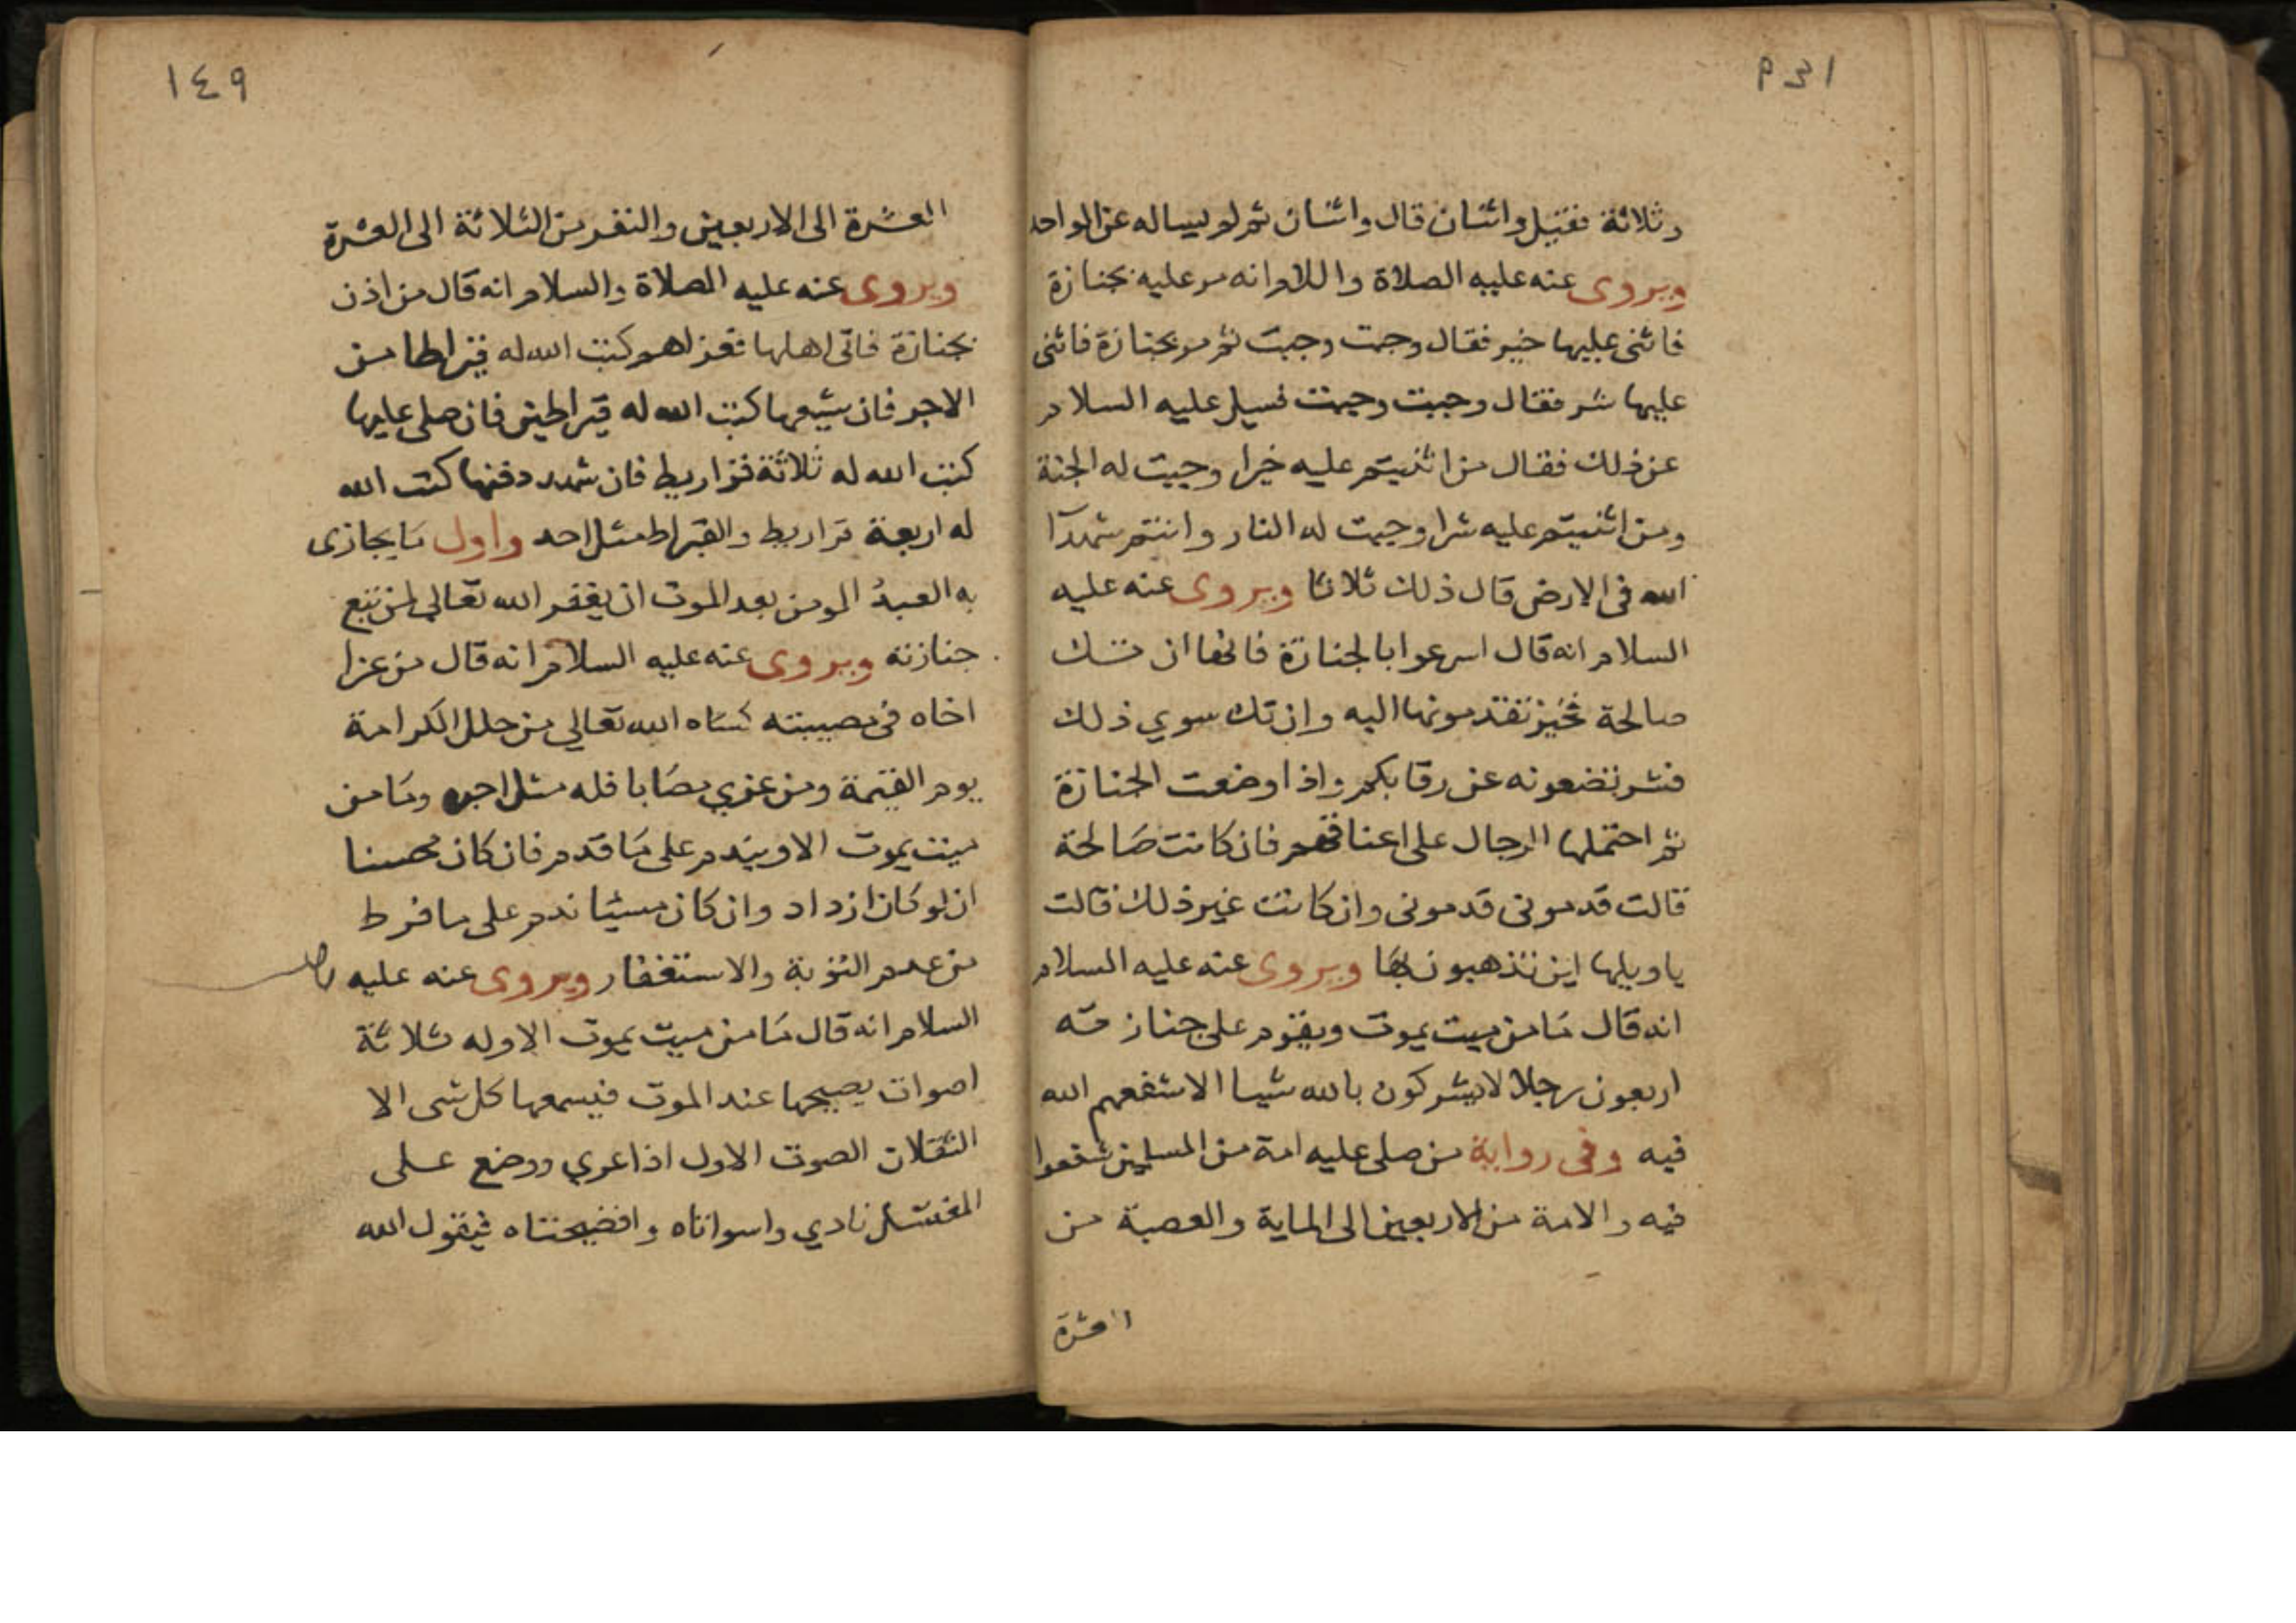 وثلاثة فقيل واثنان قال واثنان ثم لم يساله عن الواحد
ويروى عنه عليه الصلاة واللام انه مر عليه بجنازة
فاثنى عليها خير فقال وجبت وجبت ثم مر بجنازة فاثنى
عليها شر فقال وجبت وجبت فسيل عليه السلام
عن ذلك فقال من اثنيتم عليه خيرا وجبت له الجنة
ومن اثنيتم عليه شرا وجبت له النار وانتم شهدآ
الله فى الارض قال ذلك ثلاثا ويروى عنه عليه
السلام انه قال اسرعوا بالجنازة فانها ان تك
صالحة فخير تقدمونها اليه وان تك سوي ذلك
فشر تضعونه عن رقابكم واذا وضعت الجنازة
ثم احتملها الرجال على اعناقهم فان كانت صالحة
قالت قدمونى قدمونى وان كانت غير ذلك قالت
ياويلها اين تذهبون بها ويروى عنه عليه السلام
انه قال ما من ميت يموت ويقوم على جنازته
اربعون رجلا لا يشركون بالله شيا الا شفعهم الله
فيه وفى رواية من صلى عليه امة من المسلمين شفعوا
فيه والامة من الاربعين الى الماية والعصبة من
العشرة
١٤٩
العشرة الى الاربعين والنفر من الثلاثة الى العشرة
ويروى عنه عليه الصلاة والسلام انه قال من اذن
بجنازة فاتى اهلها فعزاهم كتب الله له قيراطا من
الاجر فان شيعها كتب الله له قيراطين فان صلى عليها
كتب الله له ثلاثة قراريط فان شهد دفنها كتب الله
له اربعة قراريط والقيراط مثل احد واول ما يجازى
به العبدُ المومن بعد الموت ان يغفر الله تعالى لمن تبع
جنازته ويروى عنه عليه السلام انه قال من عزا
اخاه فى مصيبته كساه الله تعالي من حلل الكرامة
يوم القيمة ومن عزي مصابا فله مثل اجره وما من
ميت يموت الا ويندم على ما قدم فان كان محسنا
ان لو كان ازداد وان كان مسيئا ندم على ما فرط
من عدم التوبة والاستغفار ويروى عنه عليه
السلام انه قال ما من ميت يموت الا وله ثلاثة
اصوات يصيحها عند الموت فيسمعها كل شى الا
الثقلان الصوت الاول اذا عري ووضع على
المغتسل نادي واسواتاه وافضيحتاه فيقول الله